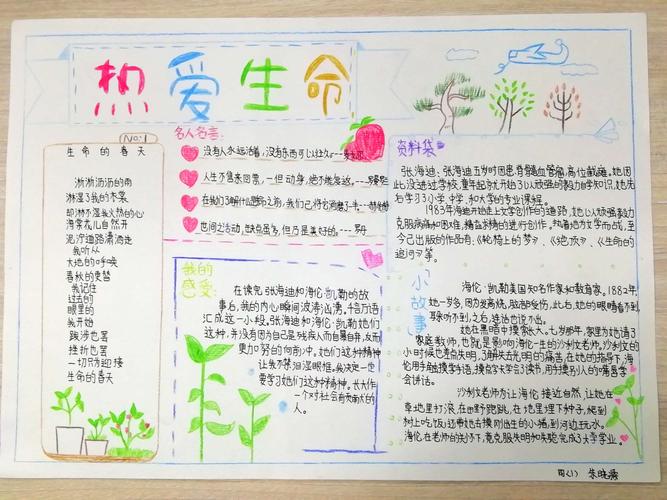 热爱生命
NO:1
生命的春天
淅淅沥沥的雨
淋湿了我的衣裳
却淋不湿我火热的心
海棠花自然开
泥泞道路潇洒走
我听从
大地的呼唤
春秋的更替
我记住
过去的
眼里的
我开始
跋涉也罢
挫折也罢
一切只为迎接
生命的春天
名人名言:
没有人永远活着,没有东西可以经久
人生不售来回票,一但动身,绝不能复返。
在我们了解什么是生命之前,我们已将它消磨了一半
世间之活动,缺点虽多,但仍是美好的。---罗丹
我的
感受:
在读完张海迪和海伦·凯勒的故
事后,我的内心瞬间波涛汹涌,千言万语
汇成这一小段。张海迪和海伦·凯勒她们
这种,并没有因为自己是残疾人而自暴自弃,反而
更加努力的向前冲。她们这种精神
让我不禁泪湿眼眶,我决定一定
要学习她们这种精神。长大作
一个对社会有贡献大的
人。
资料袋
张海迪:张海迪五岁时因患脊髓血管瘤,高位截瘫,她因
此没进过学校,童年起就开始以顽强的毅力自学知识,她先
后学习了小学、中学、和大学的专业课程。
1983年海迪开始走上文学创作的道路,她以顽强毅力
克服病痛和困难,精益求精的进行创作,执着地为文学而战,至
今已出版的作品有:《轮椅上的梦》、《绝顶》、《生命的
追问》等。
小故事
海伦·凯勒美国知名作家和教育家,1882年,
她一岁多,因为发高烧,脑部受伤,此后,她的眼睛看不到,
耳听不到,之后,连话也说不出。
她在黑暗中摸索长大。七岁那年,家里为她请了
家庭教师,也就是影响海伦一生的沙利文老师,沙利文
小时候也差点失明,了解失去光明的痛苦,在她的指导下,海
伦用手触摸学手语,摸点字学会了读书,用手摸别人的嘴唇学
会讲话。
沙利文老师为让海伦接近自然,让她在
草地里打滚,在田野跑跳,在地里埋下种子,爬到
树上吃饭;还带她去摸刚出生的小猪,到河边玩水。
海伦在老师的关怀下,竟克服失明和失聪,完成了大学学业。
四(1)